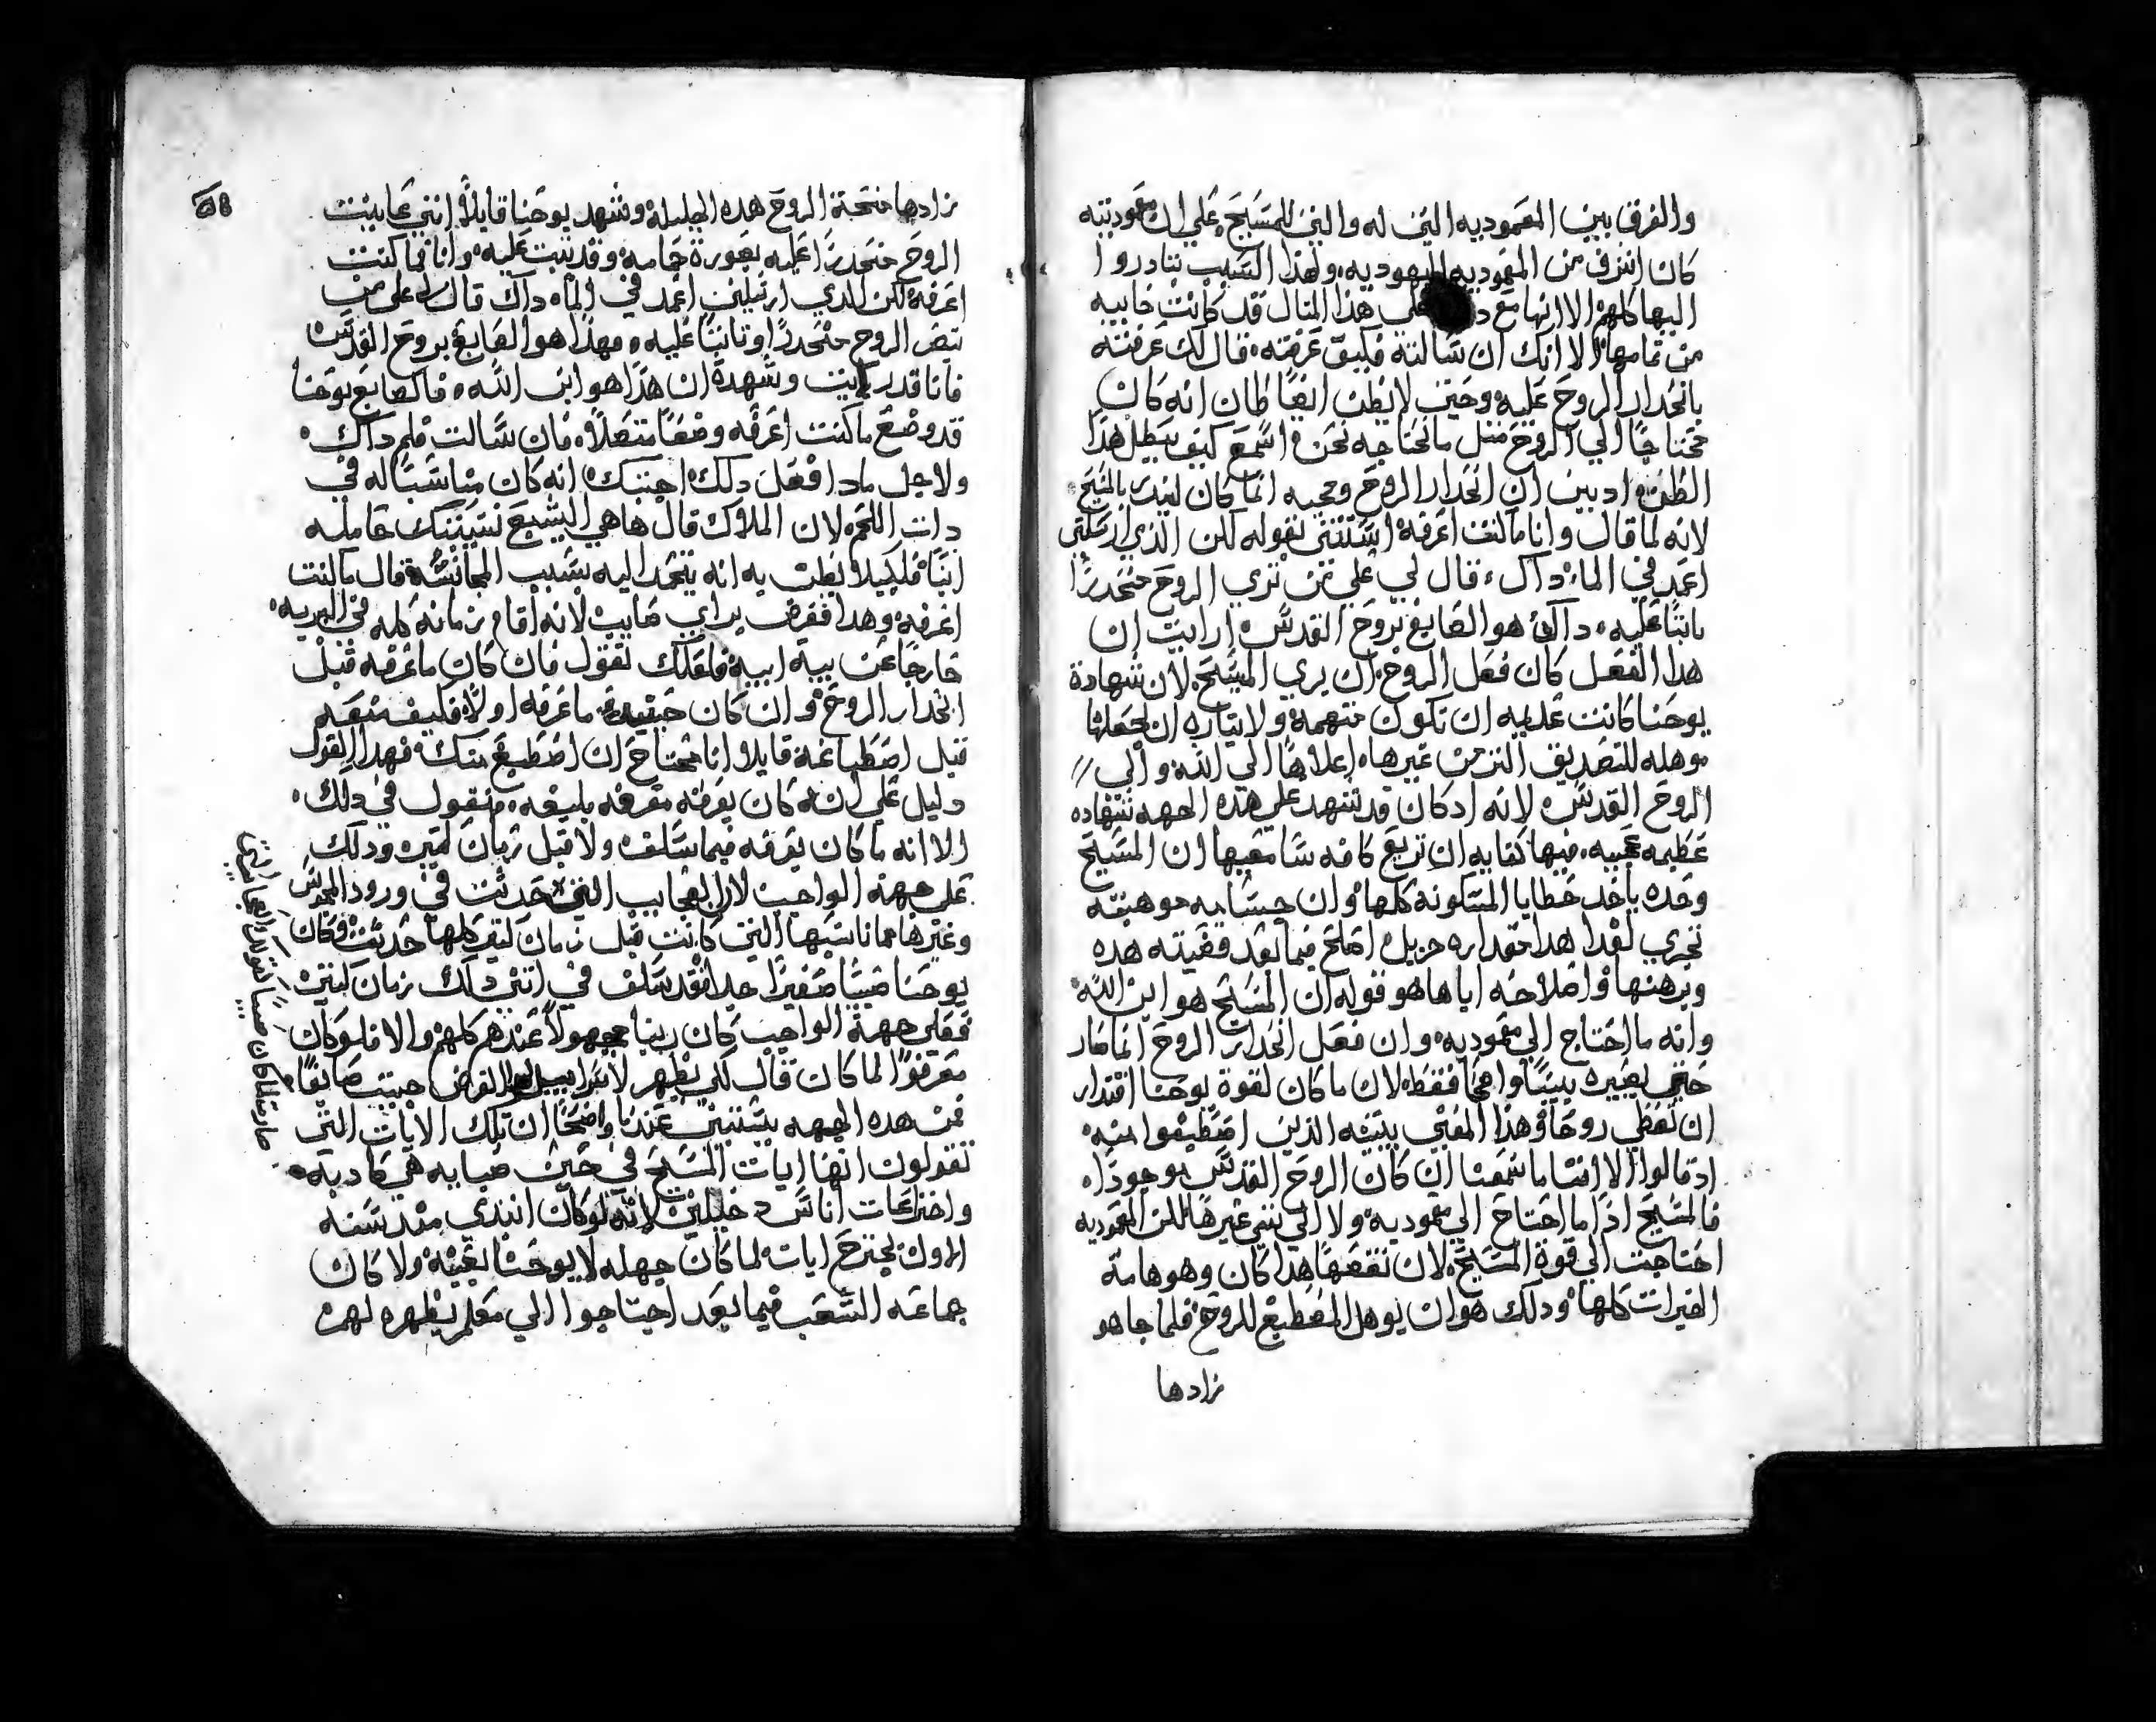 والفرق بين المعموديه التي له والتي للمسيح، علي ان معموديته
كان اشرف من المعموديه اليهوديه، ولهذا السبب تبادروا
اليها كلهم الا انها مع علي هذا المثال قد كانت خايبه
من تمامها الا انك ان سالته فكيف عرفته، قال لك عرفته
بانحدار الروح عليه وحتي لا يظن ايضًا ظان انه كان
محتاجًا الي الروح مثل ما نحتاجه نحن اسمع كيف يبطل هذا
الظن، اد بين ان انحدار الروح ومجيه انما كان لينذر بالمسيح
لانه لما قال وانا ما كنت اعرفه استثني بقوله لكن الذي ارسلني
اعمد في الماء داك، قال لي علي من تري الروح منحدرًا
ثابتًا عليه، داك هو الصابغ بروح القدس، ارايت ان
هدا الفعل كان فعل الروح، ان يري المسيح، لان شهادة
يوحنا كانت عليه ان تكون متهمه ولا يثاره ان يجعلها
موهله للتصديق اكتر من غيرها، اعلاها الي الله والي
الروح القدس، لانه ادكان قد شهد علي هده الجهه شهاده
عظيمه عجيبه، فيها كفايه ان تريع كافه سامعيها ان المسيح
وحده ياخد خطايا المسكونه كلها وان جسامه موهبته
تجري لفدا هدا مقداره جزيل اصلح فيما بعد قضيته هده
وبرهنها واصلاحه اياها هو قوله ان المسيح هو ابن الله
وانه ما احتاج الي معموديه، وان فعل انحدار الروح انما صار
حتي يصيره بينًا واضحًا فقط، لان ما كان لقوة يوحنا اقتدار
ان تعطي روحًا وهذا المعني بينته الذين اصطبغوا منه
ادقالوا الا اننا ما سمعنا ان كان الروح القدس موجودًا،
فالمسيح اذًا ما احتاج الي معموديه ولا الي شي غيرها لكن المعموديه
احتاجت الي قوة المسيح، لان نقصها هدا كان وهو هامة
الخيرات كلها ودلك هو ان يوهل المصطبغ للروح، فلما جا هو
زادها
زادها منحة الروح هده الجليلة وشهد يوحنا قايلاً انني عاينت
الروح منحدرًا عليه بصورة حمامه، وقد ثبت عليه، وانا فما كنت
اعرفه لكن الدي ارسلني اعمد في الماء داك قال لي علي من
تبصر الروح منحدرًا وثابتًا عليه، فهذا هو الصابغ بروح القدس
فانا قد رايت وشهدة ان هذا هو ابن الله، فالصابغ يوحنا
قد وضع ما كنت اعرفه وضعًا متصلاً، فان سالت فلم داك
ولاجل مادا فعل دلك، اجبتك، انه كان مناسبًا له في
دات اللحم، لان الملاك قال ها هي اليشبع نسيبتك حامله
ابنًا فلكيلا يظن به انه يتجه اليه بسبب المجانسة، قال ما كنت
اعرفه وهدا فعرض براي صايب لانه اقام زمانه كله في البريه،
خارجًا عن بيت ابيه فلعلك تقول فان كان ما عرفه قبل
انحدار الروح وان كان حينيد ما عرفه اولاً فكيف منعه
قبل اصطباغه قايلا انا محتاج ان اصطبغ منك، فهدا القول
دليل علي انه كان يعرفه معرفه بليغه، فنقول في دلك،
الا انه ما كان يعرفه فيما سلف، ولا قبل زمان كتير ودلك
علي جهة الواجب لان العجايب التي حدثت في ورود المجوس
وغيرها مما ناسبها التي كانت قبل زمان كثير كلها حدثت وكان
يوحنا صبيًا صغيرًا جدًا فقد سلف في اتني دلك زمان كثير
فعلي جهة الواجب كان ربنا مجهولاً عندهم كلهم والا فلو كان
معرفوًا لما كان قال لكي يظهر لاسراييل لهدا الغرض جيت صابغًا
فمن هده الجهه يستبين عندنا واضحًا ان تلك الايات التي
تقولون انها ايات المسيح في حين صبايه هي كادبه،
واختراعات اناس دخيلين لانه لو كان ابتدي مند سنه
الاولي يجترح ايات لما كان جهله لا يوحنا بعينه ولا كان
جماعه الشعب فيما بعد احتاجوا الي معلم يظهره لهم